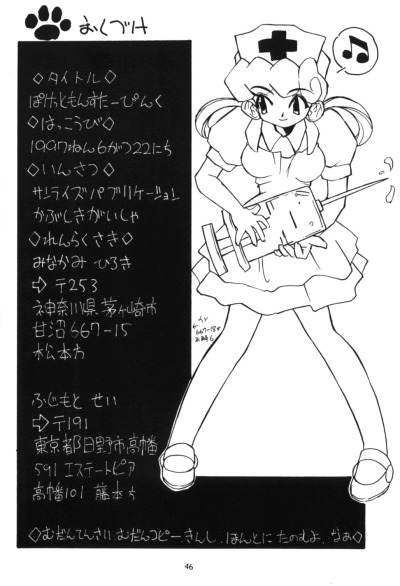 おくづけ
◇タイトル◇
ぽけっともんすたーぴんく
◇はっこうび◇
1997ねん6がつ22にち
◇いんさつ◇
サンライズパブリケーション
かぶしきがいしゃ
◇れんらくさき◇
みなかみ ひろき
⇨〒253
神奈川県茅ヶ崎市
甘沼667-15
松本方
ふじもと せい
⇨〒191
東京都日野市高幡
591 エステートピア
高幡101 藤本方
◇むだんてんさい、むだんコピーきんし、ほんとにたのむよ、なあ◇
46